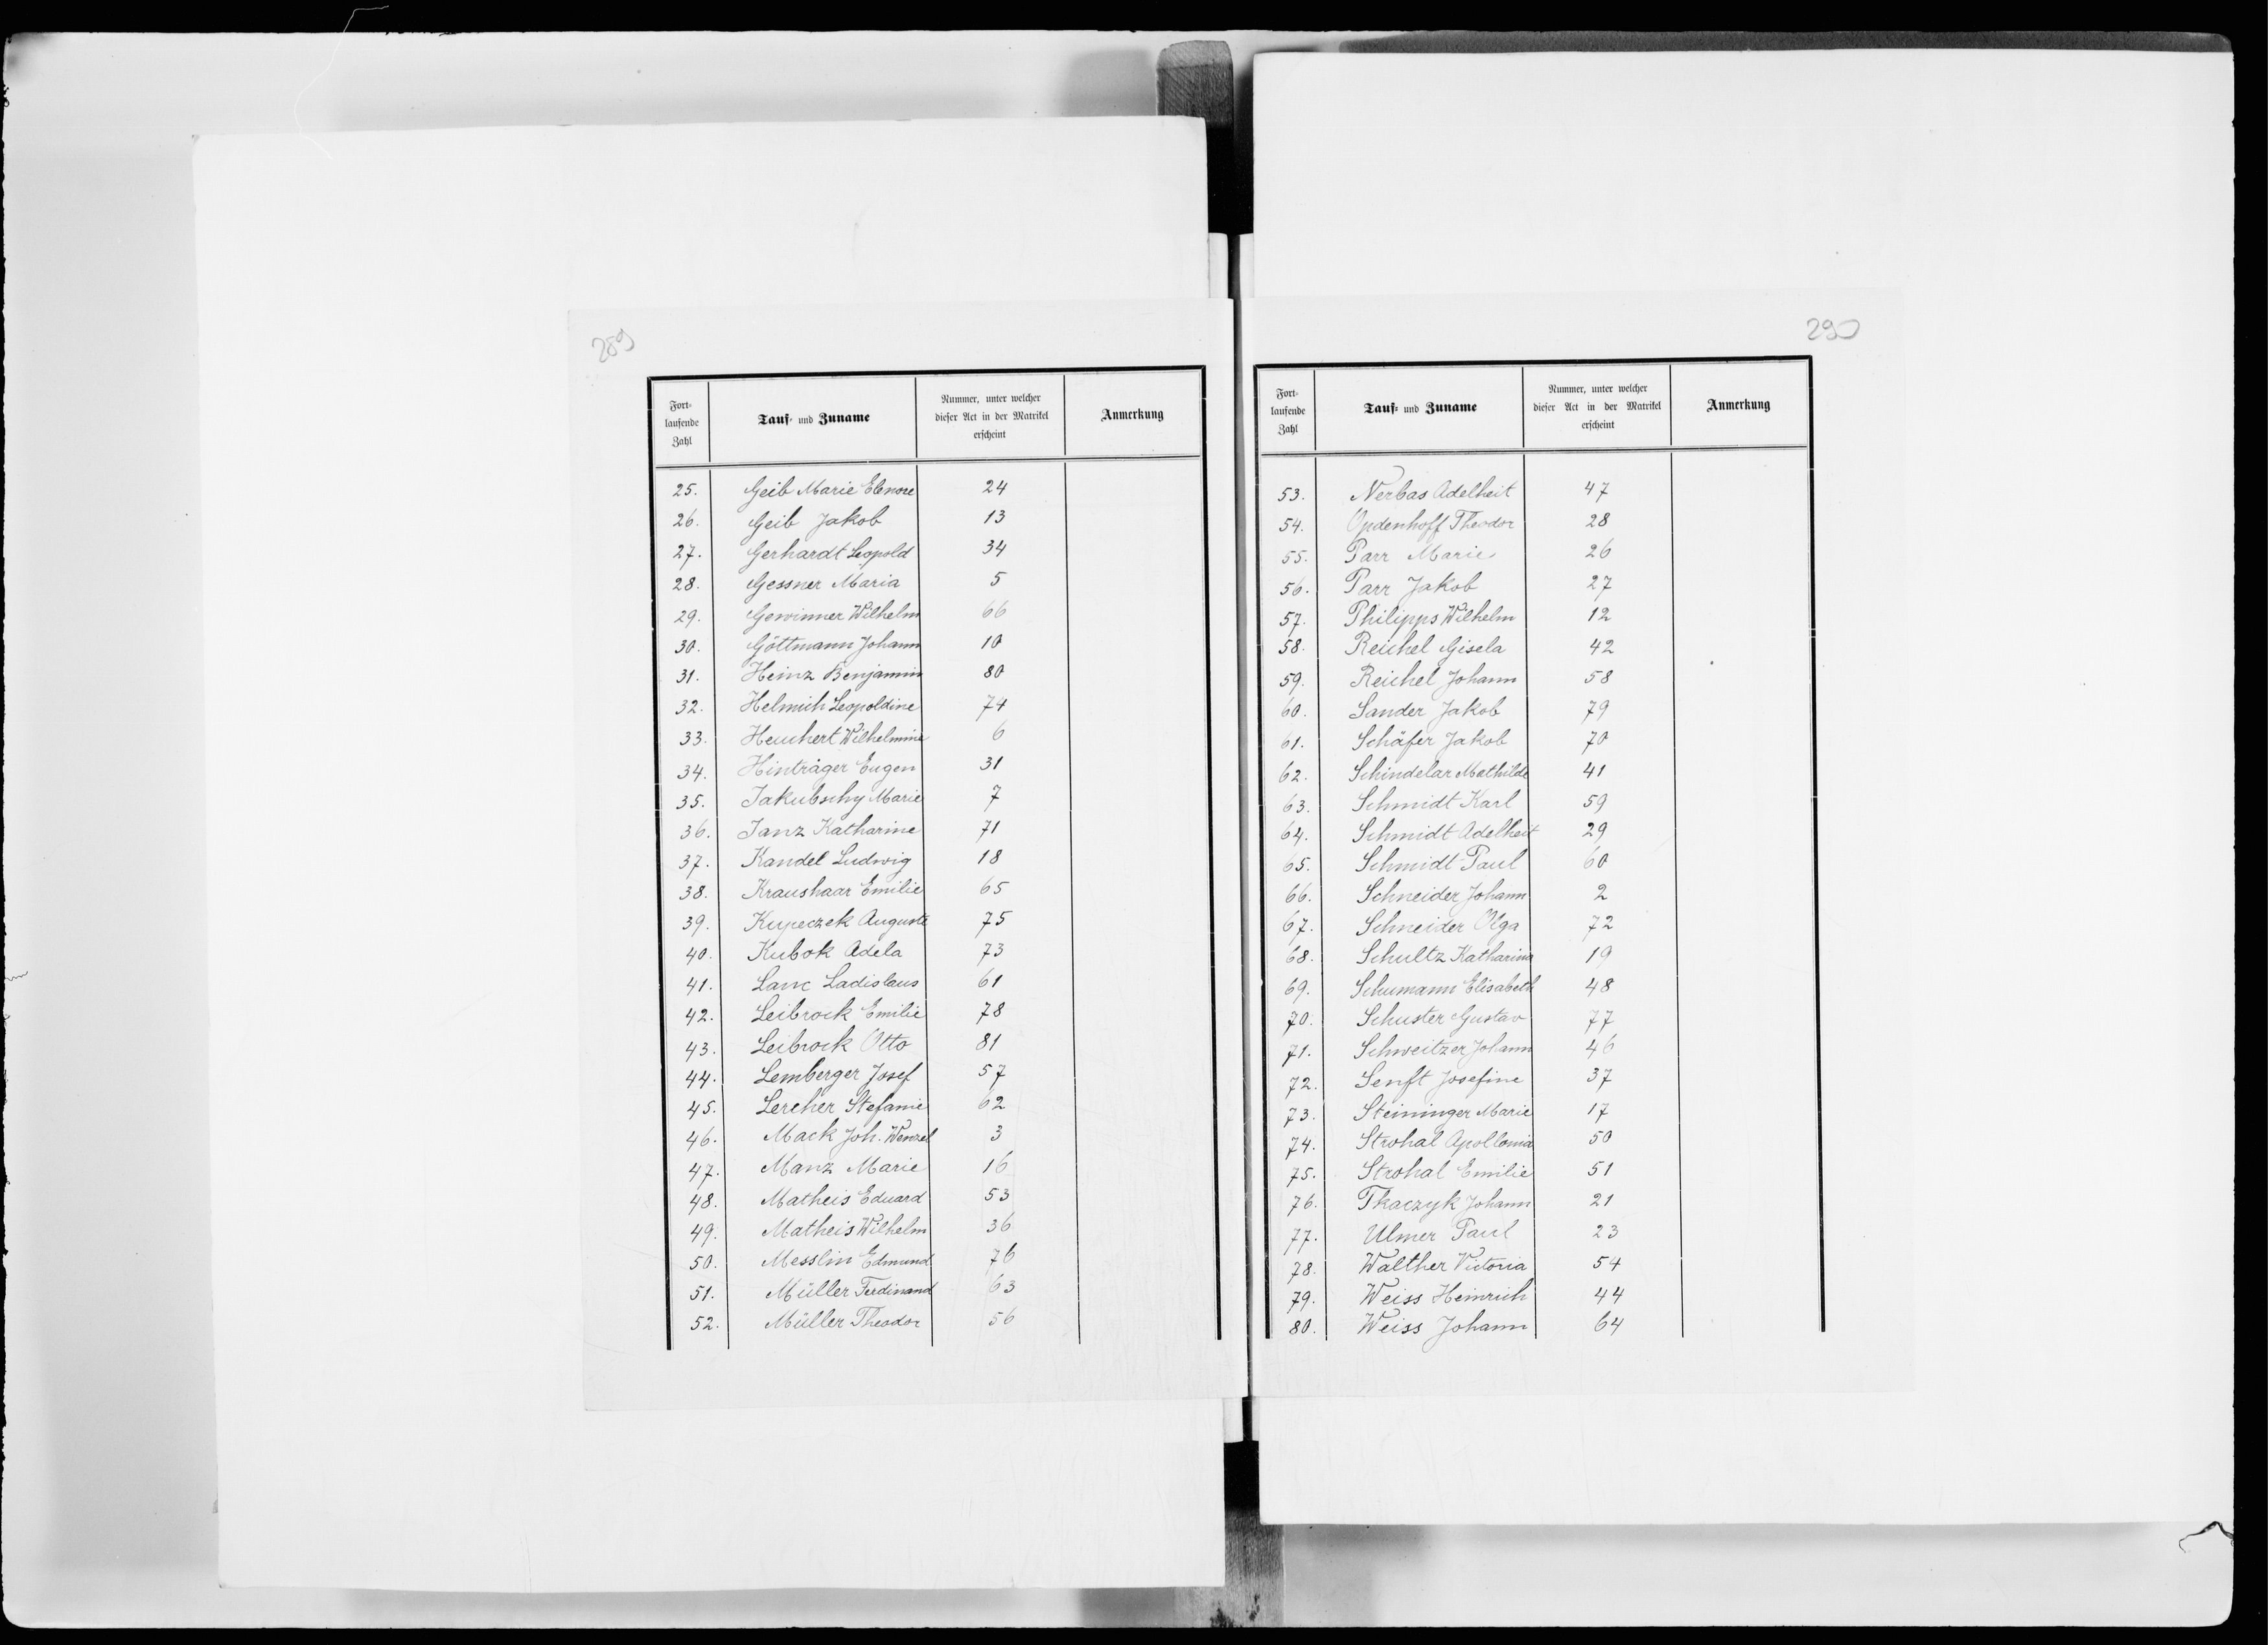 289
Fort-
laufende
Zahl
Tauf- und Zuname
Nummer, unter welcher
dieser Act in der Matrikel
erscheint
Anmerkung
25. Geib Marie Elenore 24
26. Geib Jakob 13
27. Gerhardt Leopold 34
28. Gessner Maria 5
29. Gewinner Wilhelm 66
30. Göttmann Johann 10
31. Heinz Benjamin 80
32. Helmich Leopoldine 74
33. Heuchert Wilhelmine 6
34. Hinträger Eugen 31
35. Jakubschy Marie 7
36. Janz Katharine 71
37. Kandel Ludwig 18
38. Kraushaar Emilie 65
39. Kupeczek Auguste 75
40. Kubok Adela 73
41. Lanc Ladislaus 61
42. Leibrock Emilie 78
43. Leibrock Otto 81
44. Lemberger Josef 57
45. Lercher Stefanie 62
46. Mack Joh. Wenzel 3
47. Manz Marie 16
48. Matheis Eduard 53
49. Matheis Wilhelm 36
50. Messlin Edmund 76
51. Müller Ferdinand 63
52. Müller Theodor 56
290
Fort-
laufende
Zahl
Tauf- und Zuname
Nummer, unter welcher
dieser Act in der Matrikel
erscheint
Anmerkung
53. Nerbas Adelheit 47
54. Opdenhoff Theodor 28
55. Parr Marie 26
56. Parr Jakob 27
57. Philipps Wilhelm 12
58. Reichel Gisela 42
59. Reichel Johann 58
60. Sander Jakob 79
61. Schäfer Jakob 70
62. Schindelar Mathilde 41
63. Schmidt Karl 59
64. Schmidt Adelheit 29
65. Schmidt Paul 60
66. Schneider Johann 2
67. Schneider Olga 72
68. Schultz Katharina 19
69. Schumann Elisabeth 48
70. Schuster Gustav 77
71. Schweitzer Johann 46
72. Senft Josefine 37
73. Steininger Marie 17
74. Strohal Apollonia 50
75. Strohal Emilie 51
76. Tkaczyk Johann 21
77. Ulmer Paul 23
78. Walther Victoria 54
79. Weiss Heinrich 44
80. Weiss Johann 64